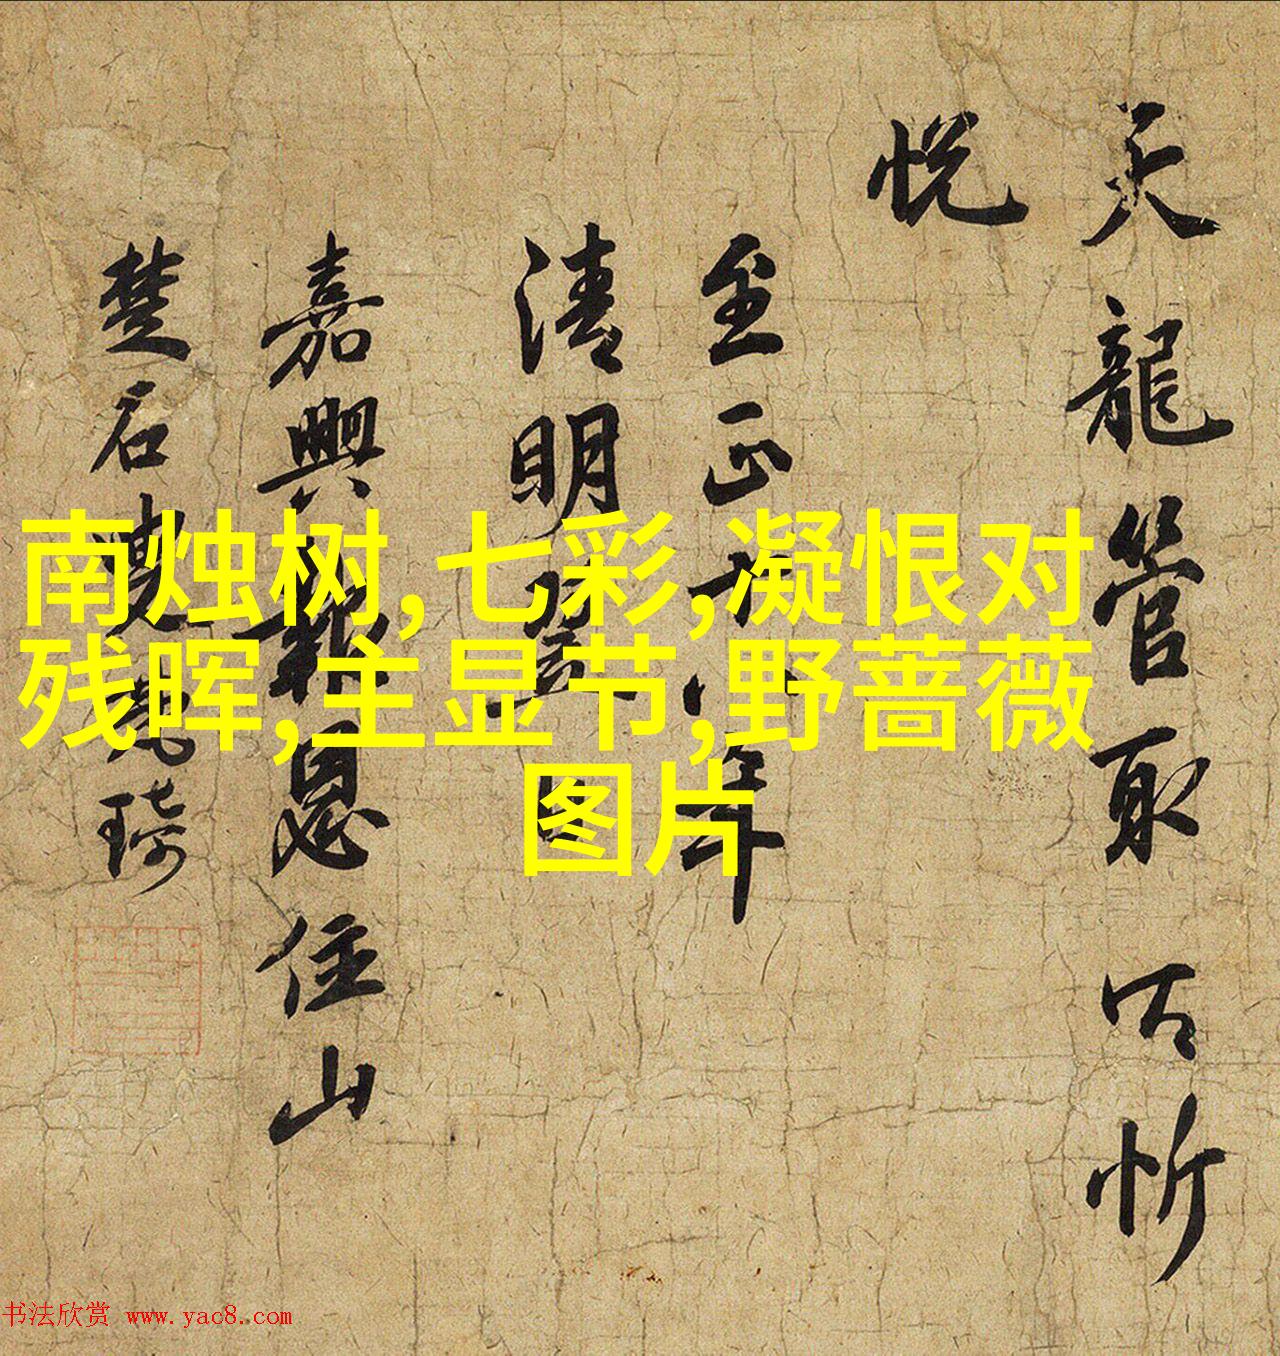 天龍管取以忻
悦
至正十年
清明
嘉興報恩住山
楚石琦
南烛树,七彩,凝恨对
残晖,主显节,野蔷薇
图片
书法欣赏 www.yac8.com